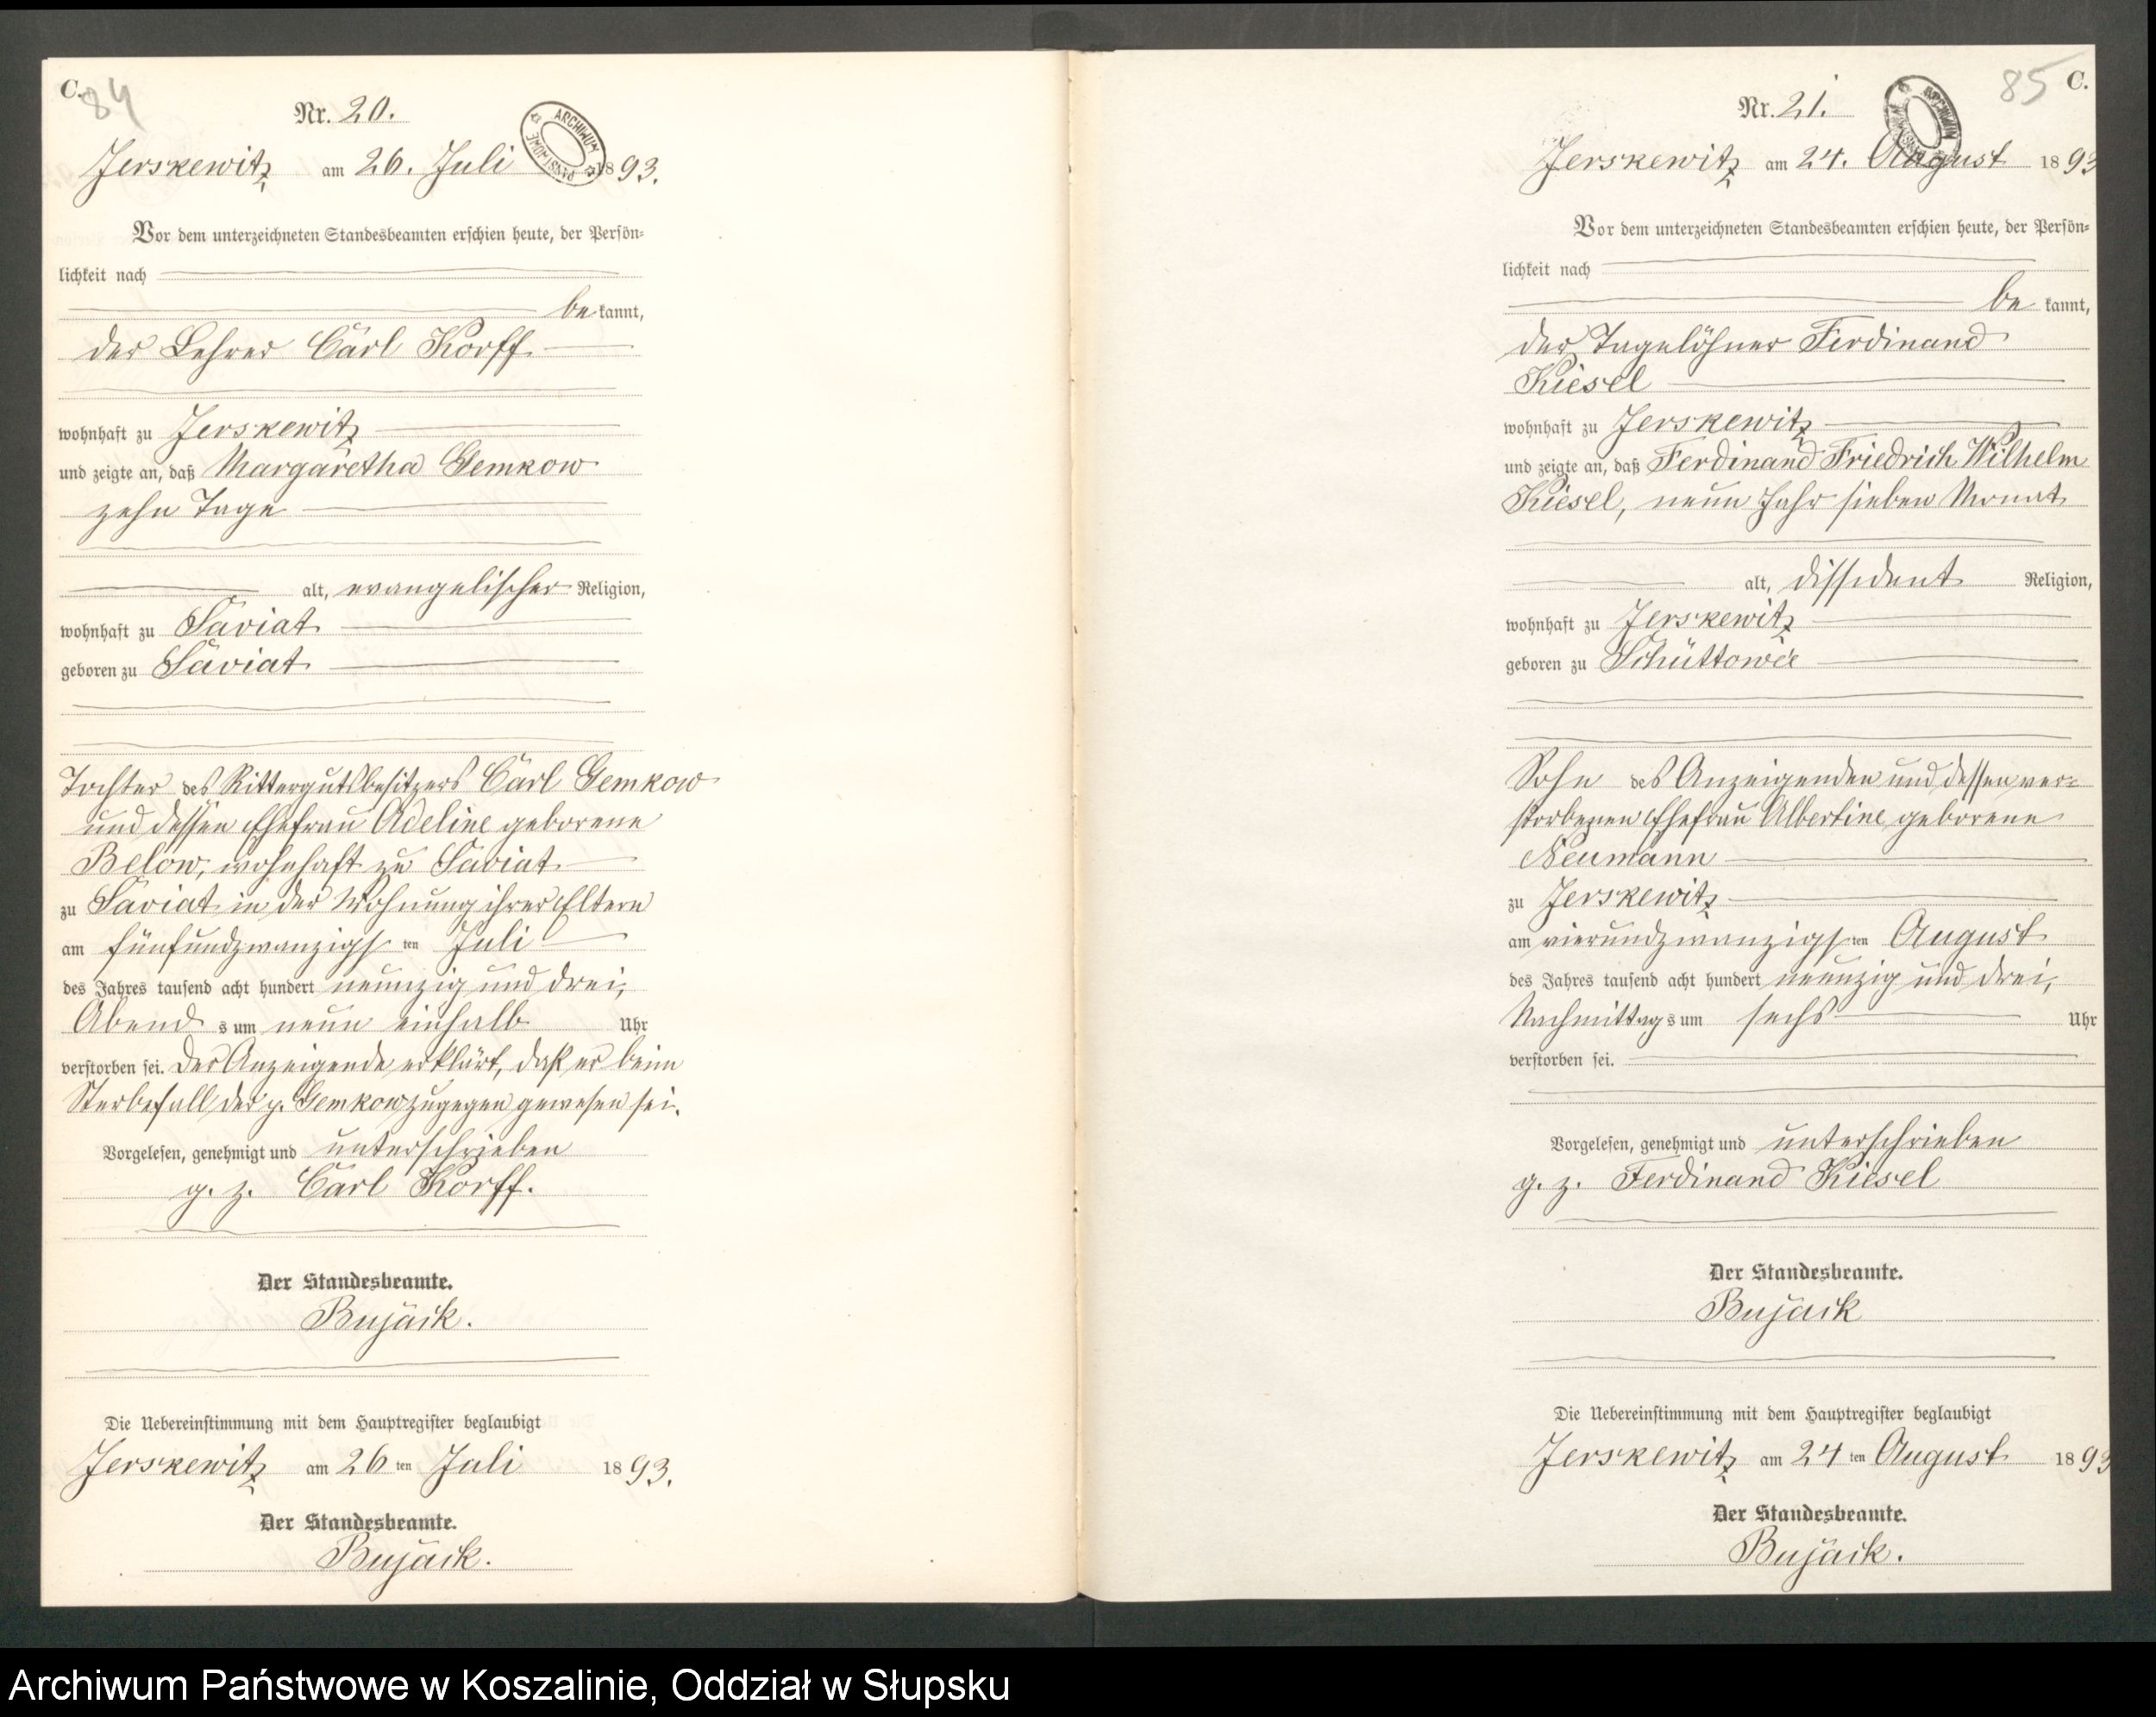 C.
84
Nr. 20.
ARCHIWUM PAŃSTWOWE
Jerskewitz am 26. Juli 1893.
Vor dem unterzeichneten Standesbeamten erschien heute, der Persön-
lichkeit nach
be kannt,
der Lehrer Carl Korff
wohnhaft zu Jerskewitz
und zeigte an, daß Margaretha Gemkow
zehn Tage
alt, evangelischer Religion,
wohnhaft zu Saviat
geboren zu Saviat
Tochter des Rittergutsbesitzers Carl Gemkow
und dessen Ehefrau Adeline geborene
Below, wohnhaft zu Saviat
zu Saviat in der Wohnung ihrer Eltern
am fünfundzwanzigs ten Juli
des Jahres tausend acht hundert neunzig und drei,
Abend s um neun einhalb Uhr
verstorben sei. Der Anzeigende erklärt, daß er beim
Sterbefall der p. Gemkow zugegen gewesen sei.
Vorgelesen, genehmigt und unterschrieben
g. z. Carl Korff.
Der Standesbeamte.
Bujack.
Die Uebereinstimmung mit dem Hauptregister beglaubigt
Jerskewitz am 26 ten Juli 1893.
Der Standesbeamte.
Bujack.
85 C.
Nr. 21.
ARCHIWUM
Jerskewitz am 24. August 1893
Vor dem unterzeichneten Standesbeamten erschien heute, der Persön-
lichkeit nach
be kannt,
der Tagelöhner Ferdinand
Kiesel
wohnhaft zu Jerskewitz
und zeigte an, daß Ferdinand Friedrich Wilhelm
Kiesel, neun Jahr sieben Monat
alt, dissident Religion,
wohnhaft zu Jerskewitz
geboren zu
Sohn des Anzeigenden und dessen ver-
storbenen Ehefrau Albertine geborene
Neumann
zu Jerskewitz
am vierundzwanzigs ten August
des Jahres tausend acht hundert neunzig und drei,
Nachmittag s um sechs Uhr
verstorben sei.
Vorgelesen, genehmigt und unterschrieben
g. z. Ferdinand Kiesel
Der Standesbeamte.
Bujack
Die Uebereinstimmung mit dem Hauptregister beglaubigt
Jerskewitz am 24 ten August 1893
Der Standesbeamte.
Bujack.
Archiwum Państwowe w Koszalinie, Oddział w Słupsku